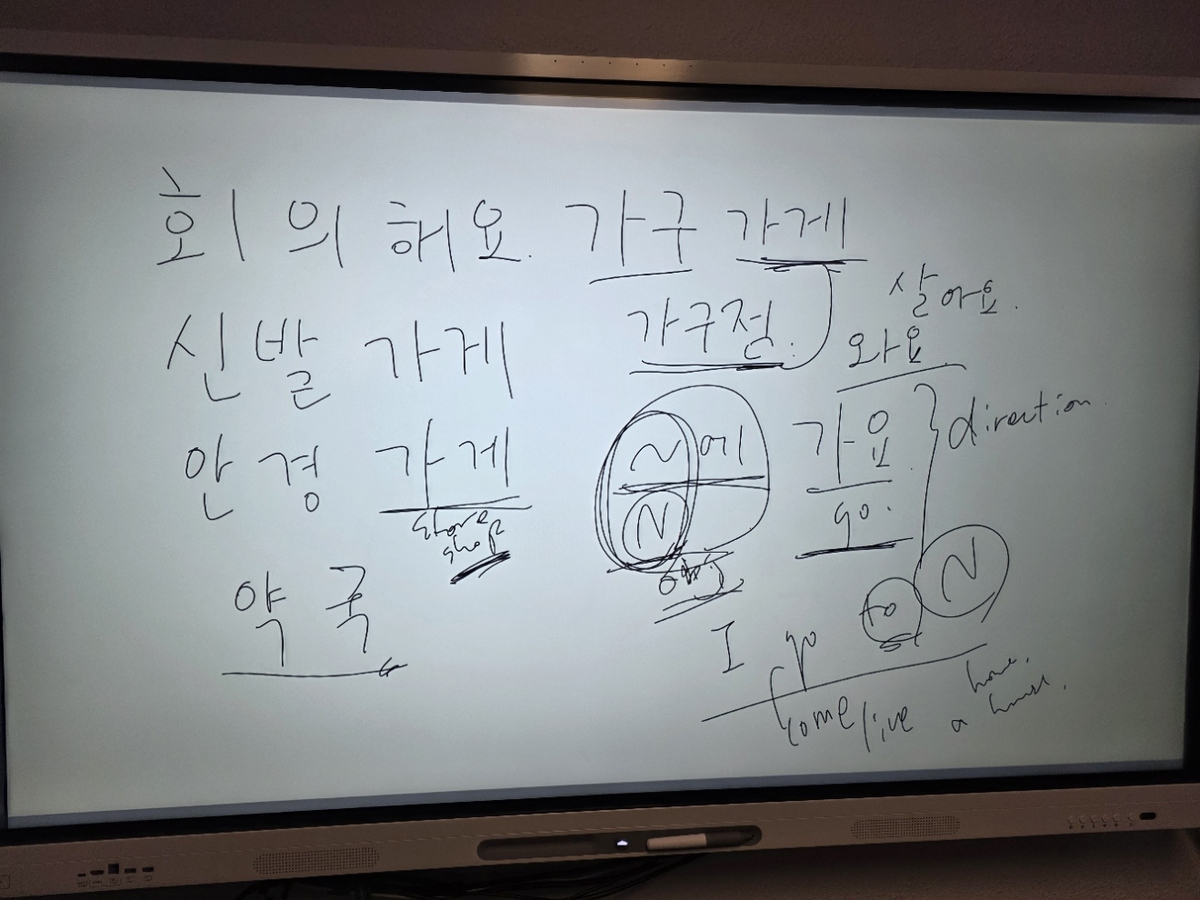 회의해요. 가구 가게
신발 가게
안경 가게
store
shop
약국
가구점.
살아요.
와요
N에 가요.
N go.
obj
direction.
I go to N
come/live a home.
house.